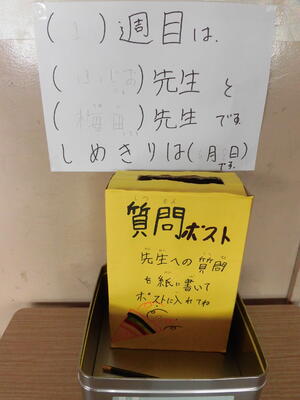 ( 1 )週目は、
( )先生と
(梅田)先生です。
しめきりは( 月 日)です。
質問ポスト
先生への質問
を紙に書いて
ポストに入れてね